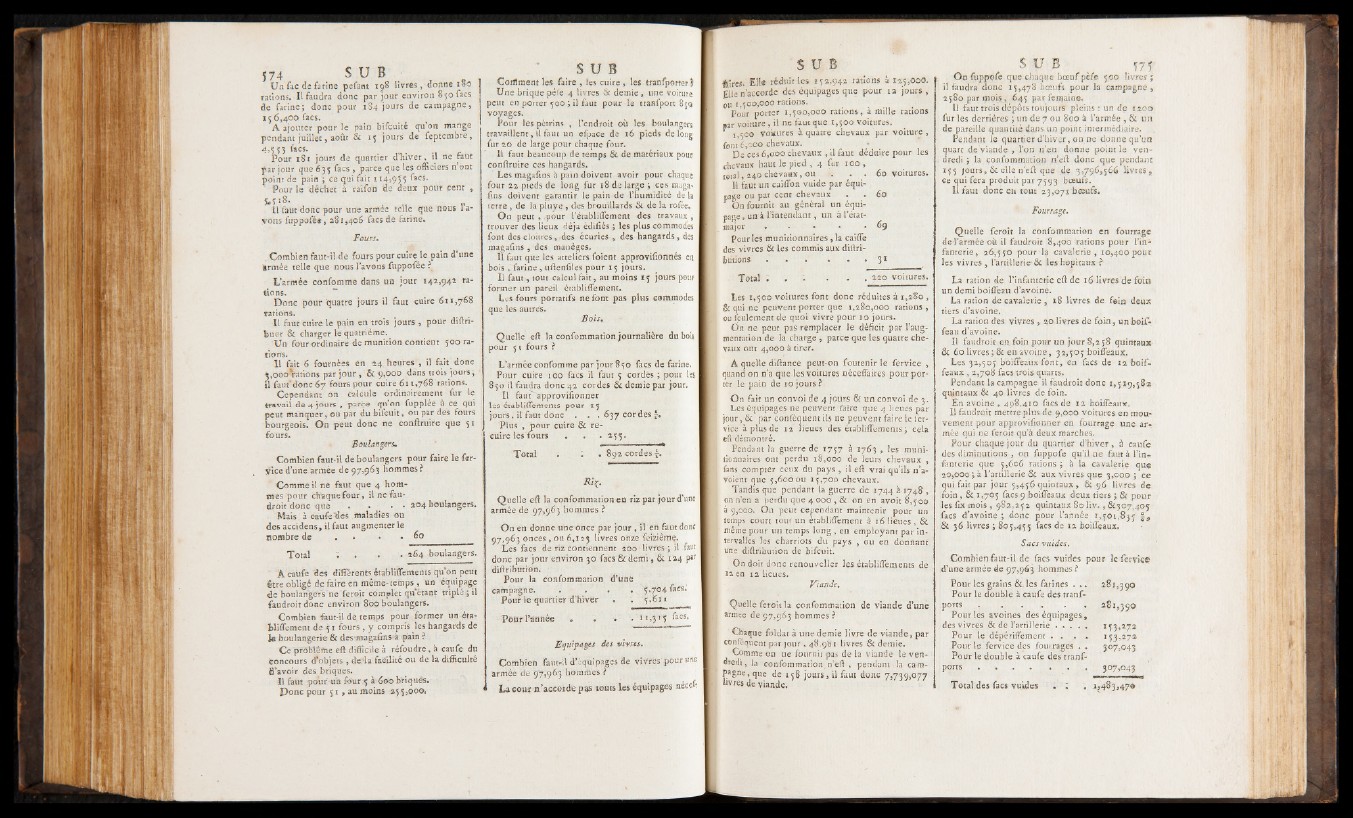 574 SUB
Un sac de farine pesant 198 livres, donne 180
rations. Il faudra donc par jour environ 850 sacs
de farine; donc pour 184 jours de campagne,
156,400 sacs.
A ajouter pour le pain biscuité qu'on mange
pendant juillet, août & 15 jours de septembre,
4,553 sacs.
Pour 181 jours de quartier d'hiver, il ne faut
par jour que 635 sacs, parce que les officiers n'ont
point de pain; ce qui fait 114,935 sacs.
Pour le déchet à raison de deux pour cent,
5,518.
Il faut donc pour une armée telle que nous l'a-
vons supposée, 281,406 sacs de farine.
Fours.
Combien faut-il de fours pour cuire le pain d'une
armée telle que nous l'avons supposée ?
L'armée consomme dans un jour 142,942 ra-
tions.
Donc pour quatre jours il faut cuire 611,768
rations.
Il faut cuire le pain en trois jours, pour distri-
buer & charger le quatrième.
Un four ordinaire de munition contient 500 ra-
tions.
Il fait 6 fournées en 24 heures, il fait donc
3,000 rations par jour, & 9,000 dans trois jours,
il faut donc 67 fours pour cuire 611,768 rations.
Cependant on calcule ordinairement sur le
travail de 4 jours, parce qu'on supplée à ce qui
peut manquer, ou par du biscuit, ou par des fours
bourgeois. On peut donc ne construire que 51
fours.
Boulangers.
Combien faut-il de boulangers pour faire le ser-
vice d'une armée de 97,963 hommes ?
Comme il ne faut que 4 hom-
mes pour chaque four, il ne fau-
droit donc que . . . . 204 boulangers.
Mais à cause des maladies ou
des accidens, il faut augmenter le
nombre de . . . . 60
Total . . . . 264 boulangers.
A cause des différents établissements qu'on peut
être obligé de faire en même-temps, un équipage
de boulangers ne seroit complet qu'étant triplé; il
faudroit donc environ 800 boulangers.
Combien faut-il de temps pour former un éta-
blissement de 51 fours, y compris les hangards de
la boulangerie & des magasins à pain ?
Ce problême est difficile à résoudre, à cause du
concours d'objets, de la facilité ou de la difficulté
d'avoir des briques.
Il faut pour un four 5 à 600 briques.
Donc pour 51, au moins 255,000,
SUB
Comment les faire, les cuire, les transporter ?
Une brique pèse 4 livres & demie, une voiture
peut en porter 500; il faut pour le transport 850
voyages.
Pour les pétrins, l'endroit où les boulangers
travaillent, il faut un espace de 16 pieds de long
sur 20 de large pour chaque four.
Il faut beaucoup de temps & de matériaux pour
construire ces hangards.
Les magasins à pain doivent avoir pour chaque
four 22 pieds de long sur 18 de large; ces maga-
sins doivent garantir le pain de l'humidité de la
terre, de la pluye, des brouillards & de la rosée.
On peut, pour l'établissement des travaux,
trouver des lieux déja édifiés; les plus commodes
sont des cloitres, des écuries, des hangards, des
magasins, des manéges.
Il faut que les atteliers soient approvisionnés en
bois, farine, ustensiles pour 15 jours.
Il faut, tout calcul fait, au moins 15 jours pour
former un pareil établissement.
Les fours portatifs ne sont pas plus commodes
que les autres.
Bois.
Quelle est la consommation journalière du bois
pour 51 fours ?
L'armée consomme par jour 850 sacs de farine.
Pour cuire 100 sacs il faut 5 cordes; pour les
850 il faudra donc 42 cordes & demie par jour.
Il faut approvisionner
les établissements pour 15
jours, il faut donc . . . 637 cordes ½.
Plus, pour cuire & re-
cuire les fours . . . 255.
Total . . . 892 cordes ½.
Riz.
Quelle est la consommation en riz par jour d'une
armée de 97,963 hommes ?
On en donne une once par jour, il en faut donc
97,963 onces, ou 6,125 livres onze seizième.
Les sacs de riz contiennent 200 livres; il faut
donc par jour environ 30 sacs & demi, & 124 par
distribution.
Pour la consommation d'une
campagne. . . . . 5,704 sacs.
Pour le quartier d'hiver . . 5,611
Pour l'année . . . . 11,315 sacs.
Equipages des vivres.
Combien faut-il d'équipages de vivres pour une
armée de 97,963 hommes ?
La cour n'accorde pas tous les équipages néces-
SUB
saires. Elle réduit les 152,942 rations à 125,000.
Elle n'accorde des équipages que pour 12 jours,
ou 1,500,000 rations.
Pour porter 1,500,000 rations, à mille rations
par voiture, il ne faut que 1,500 voitures.
1,500 voitures à quatre chevaux par voiture,
font 6,000 chevaux.
De ces 6,000 chevaux, il faut déduire pour les
chevaux haut le pied, 4 sur 100,
total, 240 chevaux, ou . . . 60 voitures.
Il faut un caisson vuide par équi-
page ou par cent chevaux . . 60
On fournit au général un équi-
page, un à l'intendant, un à l'état-
major . . . . . 69
Pour les munitionnaires, la caisse
des vivres & les commis aux distri-
butions . . . . . . 31
Total . . . . . . 220 voitures.
Les 1,500 voitures sont donc réduites à 1,280,
& qui ne peuvent porter que 1,280,000 rations,
ou seulement de quoi vivre pour 10 jours.
On ne peut pas remplacer le déficit par l'aug-
mentation de la charge, parce que les quatre che-
vaux ont 4,000 à tirer.
A quelle distance peut-on soutenir le service,
quand on n'a que les voitures nécessaires pour por-
ter le pain de 10 jours ?
On fait un convoi de 4 jours & un convoi de 3.
Les équipages ne peuvent faire que 4 lieues par
jour, & par conséquent ils ne peuvent faire le ser-
vice à plus de 12 lieues des établissements; cela
est démontré.
Pendant la guerre de 1757 à 1763, les muni-
tionnaires ont perdu 18,000 de leurs chevaux,
sans compter ceux du pays, il est vrai qu'ils n'a-
voient que 5,600 ou 15,700 chevaux.
Tandis que pendant la guerre de 1744 à 1748,
on n'en a perdu que 4,000, & on en avoit 8,500
à 9,000. On peut cependant maintenir pour un
temps court tout un établissement à 16 lieues, &
même pour un temps long, en employant par in-
tervalles les charriots du pays, ou en donnant
une distribution de biscuit.
On doit donc renouveller les établissements de
12 en 12 lieues.
Viande.
Quelle seroit la consommation de viande d'une
armée de 97,963 hommes ?
Chaque soldat à une demie livre de viande, par
conséquent par jour, 48,981 livres & demie.
Comme on ne fournit pas de la viande le ven-
dredi, la consommation n'est, pendant la cam-
pagne, que de 158 jours, il faut donc 7,739,077
livres de viande.
SUB 575
On suppose que chaque bœuf pèse 500 livres;
il faudra donc 15,478 bœufs pour la campagne,
2580 par mois, 645 par semaine.
Il faut trois dépôts toujours pleins : un de 1200
sur les derrières; un de 7 ou 800 à l'armée, & un
de pareille quantité dans un point intermédiaire.
Pendant le quartier d'hiver, on ne donne qu'un
quart de viande, l'on n'en donne point le ven-
dredi; la consommation n'est donc que pendant
155 jours, & elle n'est que de 3,796,566 livres,
ce qui sera produit par 7593 bœufs.
Il faut donc en tout 23,071 bœufs.
Fourrage.
Quelle seroit la consommation en fourrage
de l'armée où il faudroit 8,400 rations pour l'in-
fanterie, 26,550 pour la cavalerie, 10,400 pour
les vivres, l'artillerie & les hopitaux ?
La ration de l'infanterie est de 16 livres de foin
un demi boisseau d'avoine.
La ration de cavalerie, 18 livres de foin deux
tiers d'avoine.
La ration des vivres, 20 livres de foin, un bois-
seau d'avoine.
Il faudroit en foin pour un jour 8,258 quintaux
& 60 livres; & en avoine, 32,505 boisseaux.
Les 32,505 boisseaux font, en sacs de 12 bois-
seaux, 2,708 sacs trois quarts.
Pendant la campagne il faudroit donc 1,519,582
quintaux & 40 livres de foin.
En avoine, 498,410 sacs de 12 boisseaux.
Il faudroit mettre plus de 9,000 voitures en mou-
vement pour approvisionner en fourrage une ar-
mée qui ne feroit qu'à deux marches.
Pour chaque jour du quartier d'hiver, à cause
des diminutions, on suppose qu'il ne faut à l'in-
fanterie que 5,606 rations; à la cavalerie que
20,000; à l'artillerie & aux vivres que 3,000; ce
qui fait par jour 5,456 quintaux, & 96 livres de
foin, & 1,705 sacs 9 boisseaux deux tiers; & pour
les six mois, 982,252 quintaux 80 liv., & 307,405
sacs d'avoine; donc pour l'année 2,501,835 q.,
& 36 livres; 805,455 sacs de 12 boisseaux.
Sacs vuides.
Combien faut-il de sacs vuides pour le service
d'une armée de 97,963 hommes ?
Pour les grains & les farines . . . 281,390
Pour le double à cause des trans-
ports . . . . . . 281,390
Pour les avoines des équipages,
des vivres & de l'artillerie . . . . . 153,272
Pour le dépérissement . . . . 153,272
Pour le service des fourrages . . 307,043
Pour le double à cause des trans-
ports . . . . . . . 307,043
Total des sacs vuides . . . 1,483,470